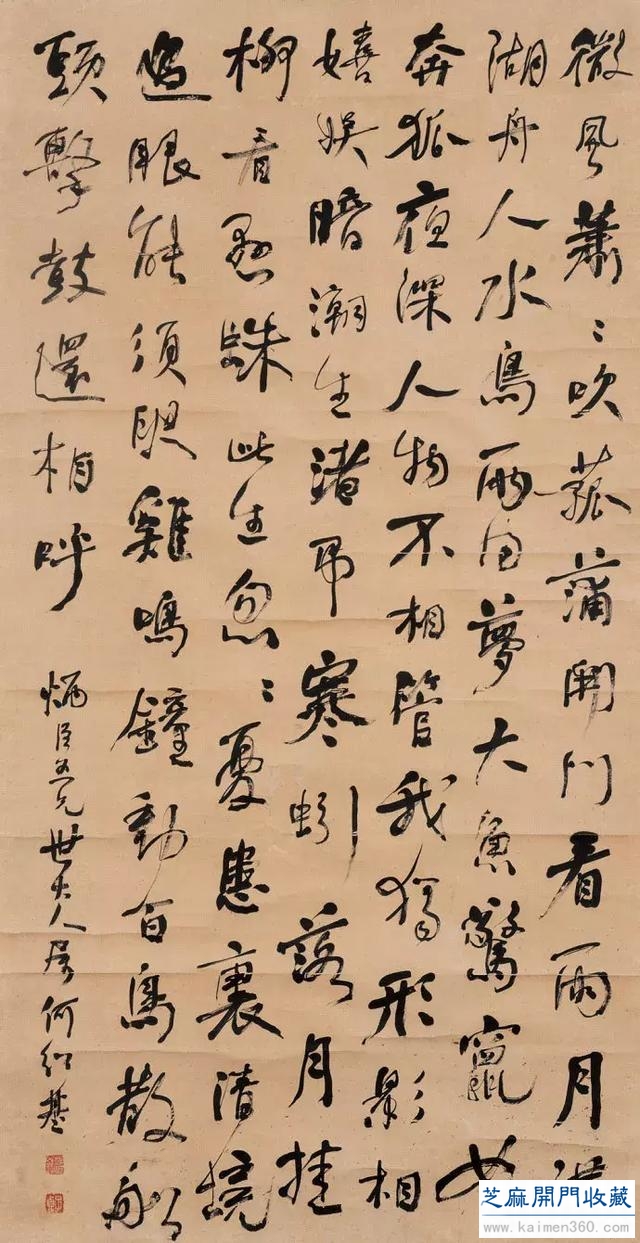 微風蕭〻吹菰蒲開門看雨月滿
湖舟人水鳥兩同夢大魚驚竄如
奔狐夜深人物不相管我獨形影相
嬉娛暗潮生渚弔寒蚓落月挂
柳看懸蛛此生忽〻憂患裏清境
過眼能須臾雞鳴鐘動百鳥散船
頭擊鼓還相呼
臣兄世大人属何紹基
芝麻開門收藏
www.kaimen360.com